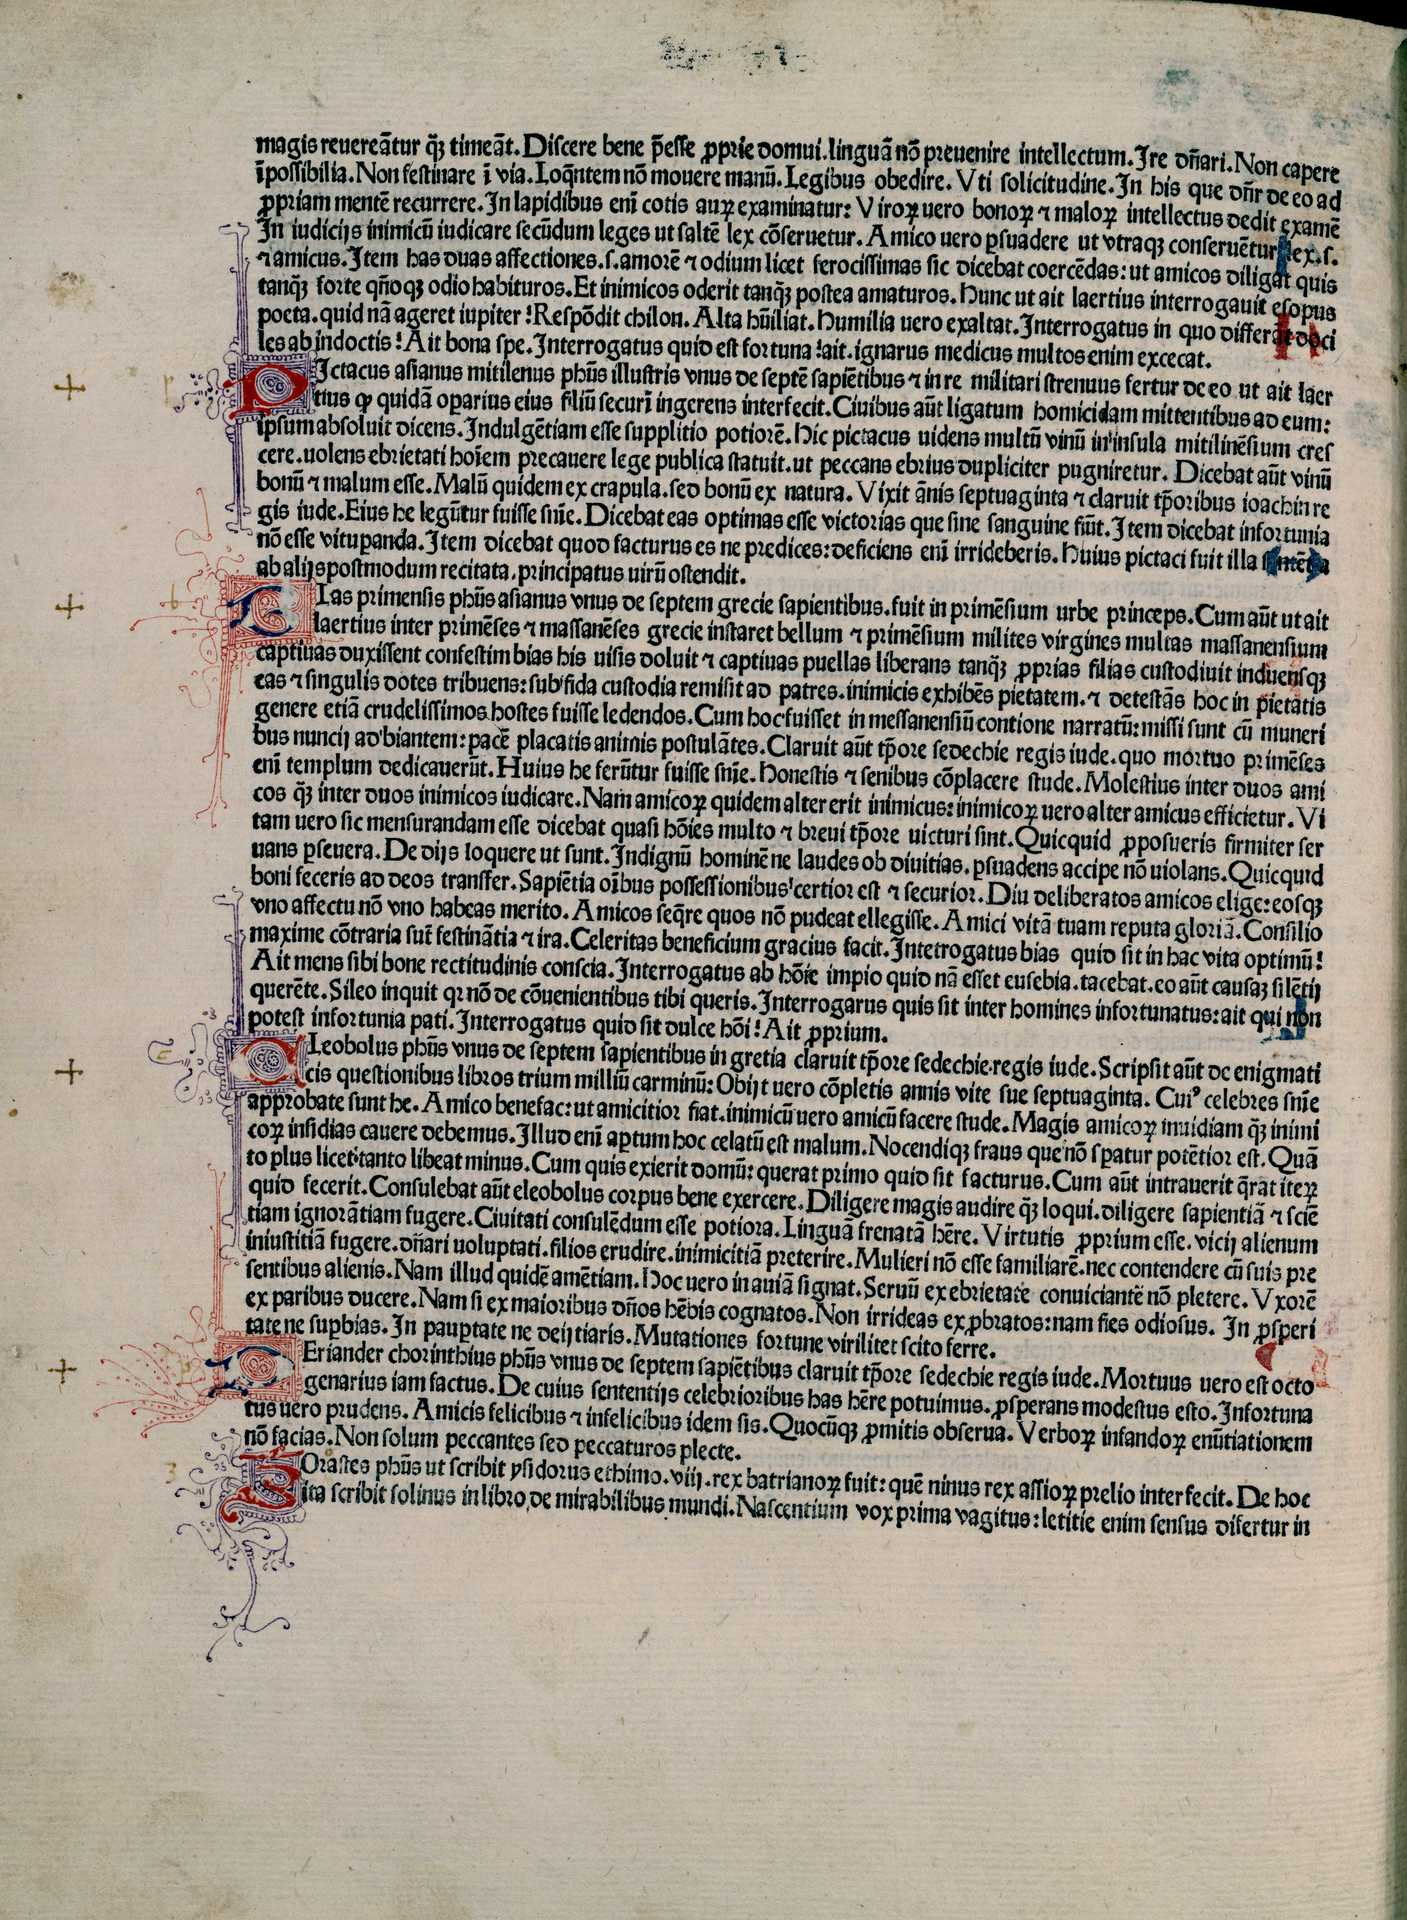 magis reuereāt​ur q̄ꝫ timeāt. Discere bene p̄esse ꝓprie domui. linguā nō preuenire intellectum. Ire dn̄ari. Non capere
īpossibilia. Non festinare ī via. Loqn̄tem nō mouere manū. Legibus obedire. Vti solicitudine. In his que dn̄r de eo ad
ꝓpriam mentē recurrere. In lapidibus enī cotis auꝝ examinatur: Viroꝝ uero bonoꝝ ⁊ maloꝝ intellectus dedit examē
In iudicijs inimicū iudicare secūdum leges ut saltē lex cōseruetur. Amico uero ꝑsuadere ut vtraqꝫ conseruētur lex. s.
⁊ amicus. Item has duas affectiones. s. amorē ⁊ odium licet ferocissimas sic dicebat coercēdas: ut amicos diligat quis
tanq̄ꝫ forte qn̄oqꝫ odio habituros. Et inimicos oderit tanq̄ꝫ postea amaturos. Hunc ut ait laertius interrogauit esopus
poeta. quid nā ageret iupiter? Respōdit chilon. Alta hūiliat. Humilia uero exaltat. Interrogatus in quo differāt doci
les ab indoctis? Ait bona spe. Interrogatus quid est fortuna? ait. ignarus medicus multos enim excecat.
PIctacus asianus mitilenus ph̄us illustris vnus de septē sapiētibus ⁊ in re militari strenuus fertur de eo ut ait laer
tius ꝙ quidā oꝑarius eius filiū securi ingerens interfecit. Ciuibus aūt ligatum homicidam mittentibus ad eum:
ipsum absoluit dicens. Indulgētiam esse supplitio potiorē. Hic pictacus uidens multū vinū in insula mitilinēsium cres
cere. uolens ebrietati hoīem precauere lege publica statuit. ut peccans ebrius dupliciter pugniretur. Dicebat aūt vinū
bonū ⁊ malum esse. Malū quidem ex crapula. sed bonū ex natura. Vixit ānis septuaginta ⁊ claruit tp̄oribus ioachin re
gis iude. Eius he legūtur fuisse sn̄ie. Dicebat eas optimas esse victorias que sine sanguine fiūt. Item dicebat infortunia
nō esse vituꝑanda. Item dicebat quod facturus es ne predices: deficiens enī irrideberis. Huius pictaci fuit illa sentētia
ab alijs postmodum recitata. principatus uirū ostendit.
BIas primensis ph̄us asianus vnus de septem grecie sapientibus. fuit in primēsium urbe princeps. Cum aūt ut ait
laertius inter primēses ⁊ massanēses grecie instaret bellum ⁊ primēsium milites virgines multas massanensium
captiuas duxissent confestim bias his uisis doluit ⁊ captiuas puellas liberans tanq̄ꝫ ꝓprias filias custodiuit induensqꝫ
eas ⁊ singulis dotes tribuens: sub fida custodia remisit ad patres. inimicis exhibēs pietatem. ⁊ detestās hoc in pietatis
genere etiā crudelissimos hostes fuisse ledendos. Cum hoc fuisset in messanensiū contione narratū: missi sunt cū muneri
bus nuncij ad biantem: pacē placatis animis postulātes. Claruit aūt tp̄ore sedechie regis iude. quo mortuo primēses
enī templum dedicauerūt. Huius he ferūtur fuisse sn̄ie. Honestis ⁊ senibus cōplacere stude. Molestius inter duos ami
cos q̄ꝫ inter duos inimicos iudicare. Nam amicoꝝ quidem alter erit inimicus: inimicoꝝ uero alter amicus efficietur. Vi
tam uero sic mensurandam esse dicebat quasi hōies multo ⁊ breui tp̄ore uicturi sint. Quicquid ꝓposueris firmiter ser
uans ꝑseuera. De dijs loquere ut sunt. Indignū hominē ne laudes ob diuitias. ꝑsuadens accipe nō uiolans. Quicquid
boni feceris ad deos transfer. Sapiētia oībus possessionibus certior est ⁊ securior. Diu deliberatos amicos elige: eosqꝫ
vno affectu nō vno habeas merito. Amicos seq̄re quos nō pudeat ellegisse. Amici vitā tuam reputa gloriā. Consilio
maxime cōtraria sūt festinātia ⁊ ira. Celeritas beneficium gracius facit. Intetrogatus bias quid sit in hac vita optimū?
Ait mens sibi bone rectitudinis conscia. Interrogatus ab hōie impio quid nā esset eusebia. tacebat. eo aūt causaꝫ silētij
querēte. Sileo inquit qꝛ nō de cōuenientibus tibi queris. Interrogarus quis sit inter homines infortunatus: ait qui non
potest infortunia pati. Interrogatus quid sit dulce hōi? Ait ꝓprium.
CLeobolus ph̄us vnus de septem sapientibus in gretia claruit tp̄ore sedechie regis iude. Scripsit aūt de enigmati
cis questionibus libros trium milliū carminū: Obijt uero cōpletis annis vite sue septuaginta. Cuiꝰ celebres sn̄ie
approbate sunt he. Amico benefac: ut amicitior fiat. inimicū uero amicū facere stude. Magis amicoꝝ inuidiam q̄ꝫ inimi
coꝝ insidias cauere debemus. Illud enī aꝑtum hoc celatū est malum. Nocendiqꝫ fraus que nō sꝑatur potētior est. Quā
to plus licet: tanto libeat minus. Cum quis exierit domū: querat primo quid sit facturus. Cum aūt intrauerit q̄rat iteꝝ
quid fecerit. Consulebat aūt eleobolus corpus bene exercere. Diligere magis audire q̄ꝫ loqui. diligere sapientiā ⁊ sciē
tiam ignorātiam fugere. Ciuitati consulēdum esse potiora. Linguā frenatā hēre. Virtutis ꝓprium esse. vicij alienum
iniustitiā fugere. dn̄ari uoluptati. filios erudire. inimicitiā preterire. Mulieri nō esse familiarē. nec contendere cū suis pre
sentibus alienis. Nam illud quidē amētiam. Hoc uero inauiā signat. Seruū ex ebrietate conuiciantē nō pletere. Vxorē
ex paribus ducere. Nam si ex maioribus dn̄os hēbis cognatos. Non irrideas exꝓbratos: nam fies odiosus. In ꝓsperi
tate ne suꝑbias. In pauꝑtate ne deijtiaris. Mutationes fortune virilitet scito ferre.
PEriander chorinthius ph̄us vnus de septem sapiētibus claruit tp̄ore sedechie regis iude. Mortuus uero est octo
genarius iam factus. De cuius sententijs celebrioribus has hēre potuimus. ꝓsperans modestus esto. Infortuna
tus uero prudens. Amicis felicibus ⁊ infelicibus idem sis. Quocūqꝫ ꝓmitis obserua. Verboꝝ infandoꝝ enūtiationem
nō facias. Non solum peccantes sed peccaturos plecte.
ZOrastes ph̄us ut scribit ysidorus ethimo. viij. rex batrianoꝝ fuit: quē ninus rex assioꝝ prelio interfecit. De hoc
ita scribit solinus in libro de mirabilibus mundi. Nascentium vox prima vagitus: letitie enim sensus disertur in